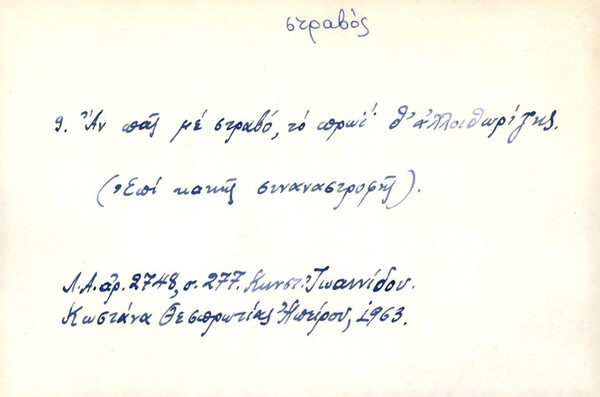 στραβός
9. Ἄν πᾶς μέ στραβό, τό πρωΐ θ' ἀλλοιθωρίζῃς.
(Ἐπί κακῆς συναναστροφῆς).
Λ.Α. ἀρ. 2748, σ. 277. Κωνστ. Ἰωαννίδου.
Κωστάνα Θεσπρωτίας Ἠπείρου, 1963.